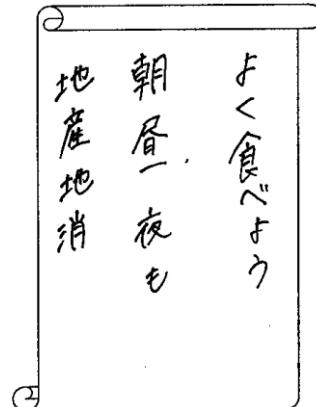 よく食べよう
朝昼夜も
地産地消